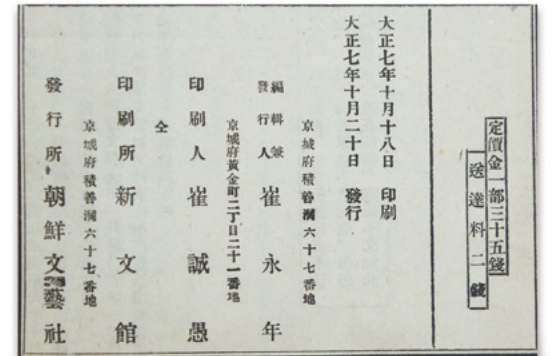 定價金一部三十五錢
送達料二錢
大正七年十月十八日 印刷
大正七年十月二十日 發行
京城府積善洞六十七番地
編輯兼
發行人 崔永年
京城府黃金町二丁目二十一番地
印刷人 崔誠愚
仝
印刷所 新文館
京城府積善洞六十七番地
發行所 朝鮮文藝社